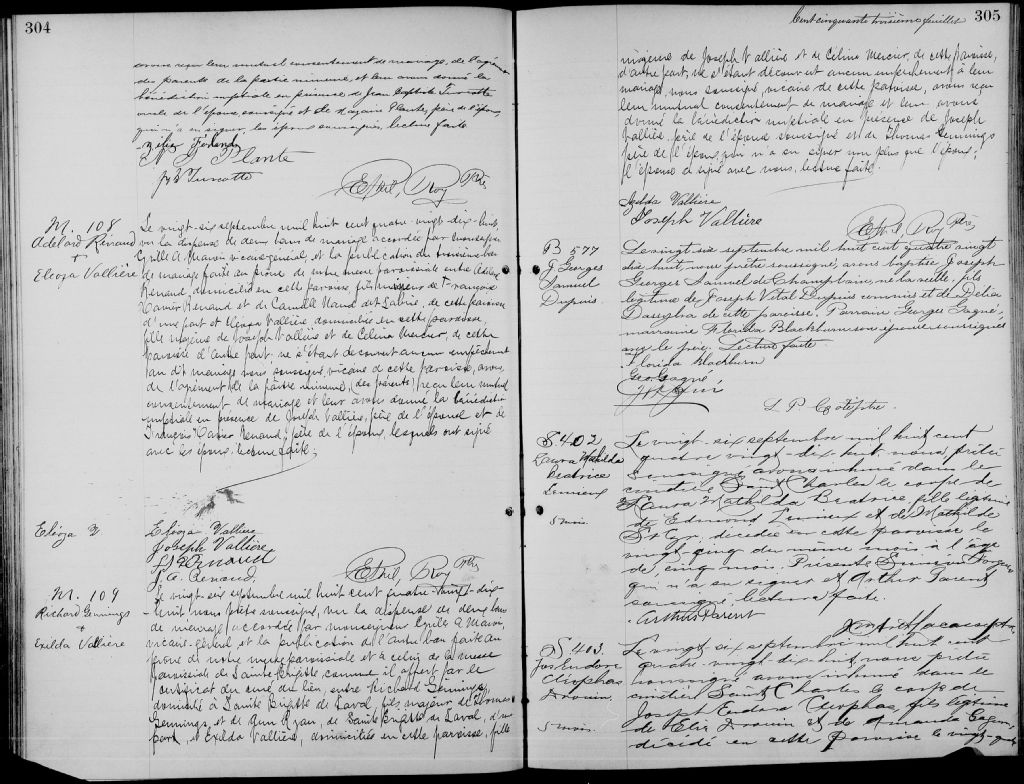 304
avons reçu leur mutuel consentement de mariage, de l'agrément
des parents de la partie mineure, et leur avons donné la
bénédiction nuptiale en présence de Jean Baptiste Turcotte
oncle de l'épouse, soussigné et de Nazaire Plante, père de l'époux,
qui n'a su signer, les époux soussignés, lecture faite
Plante
J B Turcotte
Ephil, Roy Ptre
M. 108
Adélard Renaud
+
Elioza Vallière
Le vingt-six septembre mil huit cent quatre-vingt-dix-huit,
vu la dispense de deux bans de mariage accordée par Monseigneur
Cyrille A. Marois vicaire-général, et la publication du troisième ban
de mariage faite au prône de notre messe paroissiale entre Adélard
Renaud, domicilié en cette paroisse fils mineur de François
Xavier Renaud et de Camille de cette paroisse
d'une part et Elioza Vallière domiciliée en cette paroisse,
fille majeure de Joseph Vallière et de Célina Mercier, de cette
paroisse d'autre part; ne s'étant découvert aucun empêchement
au dit mariage, nous soussigné, vicaire de cette paroisse, avons,
de l'agrément de la partie mineure, (des parents) reçu leur mutuel
consentement de mariage et leur avons donné la bénédiction
nuptiale en présence de Joseph Vallière, père de l'épouse et de
François Xavier Renaud, père de l'époux, lesquels ont signé
avec les époux. Lecture faite.
Elioza V.
Elioza Vallière
Joseph Vallière
Renaud
A. Renaud,
Ephil, Roy Ptre
M. 109
Richard Jennings
+
Exilda Vallière
Le vingt-six septembre mil huit cent quatre-vingt-dix-
huit nous prêtre soussigné, vu la dispense de deux bans
de mariage accordée par Monseigneur Cyrille A Marois,
vicaire-général et la publication de l'autre ban faite au
prône de notre messe paroissiale et à celui de la messe
paroissiale de Sainte Brigitte comme il appert par le
certificat du curé du lieu, entre Richard Jennings,
domicilié à Sainte Brigitte de Laval, fils majeur de Thomas
Jennings, et de Ann Ryan, de Sainte Brigitte de Laval, d'une
part, et Exilda Vallière, domiciliée en cette paroisse, fille
Cent cinquante troisième feuillet
305
majeure de Joseph Vallière et de Célina Mercier, de cette paroisse,
d'autre part, ne s'étant découvert aucun empêchement à leur
mariage, nous soussigné, vicaire de cette paroisse, avons reçu
leur mutuel consentement de mariage et leur avons
donné la bénédiction nuptiale en présence de Joseph
Vallière, père de l'épouse soussigné et de Thomas Jennings
père de l'époux, qui n'a su signer non plus que l'époux;
l'épouse a signé avec nous, lecture faite.
Exilda Vallière
Joseph Vallière
Ephil, Roy Ptre
B 577
J Georges
Samuel
Dupuis.
Le vingt six septembre mil huit cent quatre vingt
dix huit, nous prêtre soussigné, avons baptisé Joseph
Georges Samuel de Champlain, né la veille, fils
légitime de Joseph Vital Dupuis commis et de Délia
de cette paroisse. Parrain Georges Gagné,
marraine Florida Blackburn son épouse soussignés
avec le père. Lecture faite.
Florida Blackburn
Geo Gagné
L P Coté ptre.
S 402
Laura Mathilda
Beatrice
Lemieux
5 mois.
Le vingt-six septembre mil huit cent
quatre vingt-dix-huit nous prêtre
soussigné avons inhumé dans le
cimetière Saint Charles le corps de
Laura Mathilda Beatrice fille légitime
de Edmond Lemieux et de Mathilde
St Cyr, décédée en cette paroisse le
vingt-cinq du même mois à l'âge
de cinq mois. Présents
qui n'a su signer et Arthur Parent
soussigné. Lecture faite.
Arthur Parent
S 403.
Jos. Eudore
Cléophas
Drouin
5 mois.
Le vingt-six septembre mil huit cent
quatre-vingt-dix-huit nous prêtre
soussigné avons inhumé dans le
cimetière Saint Charles le corps de
Joseph Eudore Cléophas, fils légitime
de Elie Drouin et de Amanda
décédé en cette paroisse le vingt-quatre